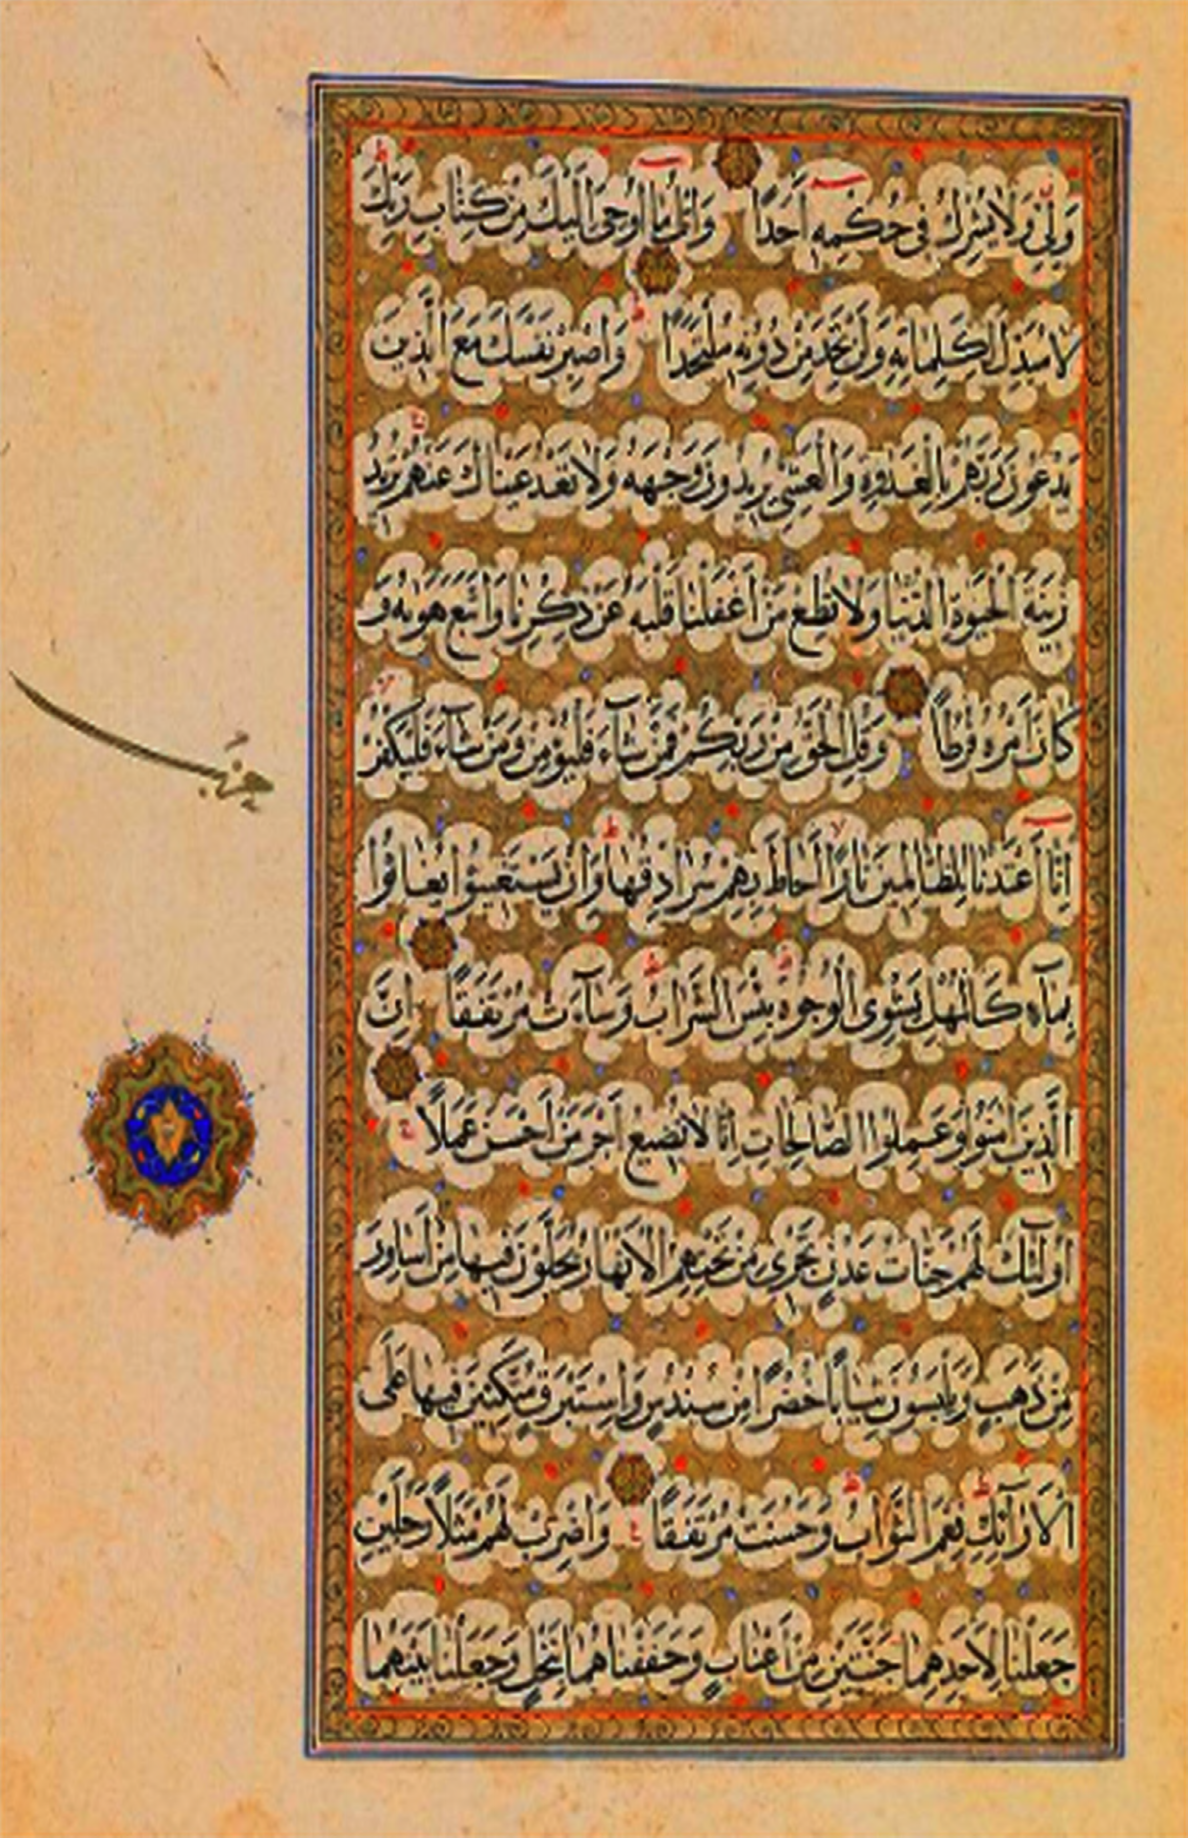 وَلِيٍّ وَلَا يُشْرِكُ فِي حُكْمِهِ أَحَدًا وَاتْلُ مَا أُوحِيَ إِلَيْكَ مِنْ كِتَابِ رَبِّكَ
لَا مُبَدِّلَ لِكَلِمَاتِهِ وَلَنْ تَجِدَ مِنْ دُونِهِ مُلْتَحَدًا وَاصْبِرْ نَفْسَكَ مَعَ الَّذِينَ
يَدْعُونَ رَبَّهُمْ بِالْغَدٰوةِ وَالْعَشِيِّ يُرِيدُونَ وَجْهَهُ وَلَا تَعْدُ عَيْنَاكَ عَنْهُمْ تُرِيدُ
زِينَةَ الْحَيٰوةِ الدُّنْيَا وَلَا تُطِعْ مَنْ أَغْفَلْنَا قَلْبَهُ عَنْ ذِكْرِنَا وَاتَّبَعَ هَوٰيهُ وَ
كَانَ أَمْرُهُ فُرُطًا وَقُلِ الْحَقُّ مِنْ رَبِّكُمْ فَمَنْ شَآءَ فَلْيُؤْمِنْ وَمَنْ شَآءَ فَلْيَكْفُرْ
إِنَّا أَعْتَدْنَا لِلظَّالِمِينَ نَارًا أَحَاطَ بِهِمْ سُرَادِقُهَا وَإِنْ يَسْتَغِيثُوا يُغَاثُوا
بِمَآءٍ كَالْمُهْلِ يَشْوِي الْوُجُوهَ بِئْسَ الشَّرَابُ وَسَآءَتْ مُرْتَفَقًا إِنَّ
الَّذِينَ اٰمَنُوا وَعَمِلُوا الصَّالِحَاتِ إِنَّا لَا نُضِيعُ أَجْرَ مَنْ أَحْسَنَ عَمَلًا
أُولٰٓئِكَ لَهُمْ جَنَّاتُ عَدْنٍ تَجْرِي مِنْ تَحْتِهِمُ الْأَنْهَارُ يُحَلَّوْنَ فِيهَا مِنْ أَسَاوِرَ
مِنْ ذَهَبٍ وَيَلْبَسُونَ ثِيَابًا خُضْرًا مِنْ سُنْدُسٍ وَإِسْتَبْرَقٍ مُتَّكِئِينَ فِيهَا عَلَى
الْأَرَآئِكِ نِعْمَ الثَّوَابُ وَحَسُنَتْ مُرْتَفَقًا وَاضْرِبْ لَهُمْ مَثَلًا رَجُلَيْنِ
جَعَلْنَا لِأَحَدِهِمَا جَنَّتَيْنِ مِنْ أَعْنَابٍ وَحَفَفْنَاهُمَا بِنَخْلٍ وَجَعَلْنَا بَيْنَهُمَا
حزب